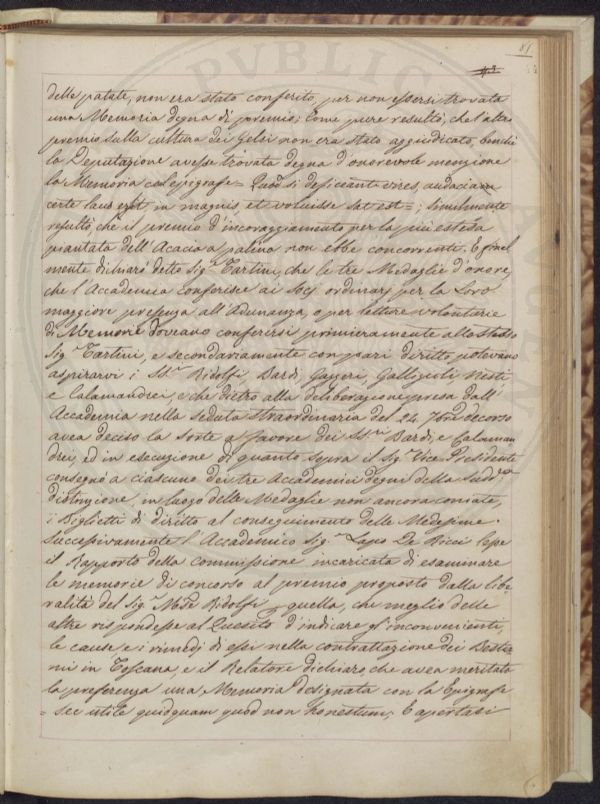 81
delle patate, non era stato conferito, per non essersi trovata
una Memoria degna di premio; Come pure resultò, che l'altro
premio sulla cultura dei Gelsi non era stato aggiudicato, benchè
la Deputazione avesse trovata degna d'onorevole menzione
la Memoria coll'epigrafe = Quod si deficeant vires, audaciam
certe laus erit, in magnis, et voluisse sat est =; Similmente
resultò, che il premio d'incoraggiamento per la più estesa
piantata dell'Acacia a palina non ebbe concorrente. E final
mente dichiarò detto Sig.r Tartini, che le tre Medaglie d'onore,
che l'Accademia conferisce ai Socj ordinarj per la Loro
maggiore presenza all'Adunanza, o per letture volontarie
di Memorie dovevano conferirsi primieramente allo stesso
Sig.r Tartini, e secondariamente con pari diritto potevano
aspirarvi i SS.ri Ridolfi, Bardi, Gazzeri, Gallizioli, Nesti
e Calamandrei, e che dietro alla deliberazione presa dall'
Accademia nella seduta straordinaria del 24. 7bre decorso
avea deciso la sorte a favore dei SS.ri Bardi, e Calaman
drei, ed in esecuzione di quanto sopra il Sig.r Vice Presidente
consegnò a ciascuno dei tre Accademici degni della Sudd.a
distinzione, in luogo delle Medaglie non ancora coniate,
i Biglietti di diritto al conseguimento delle Medesime.
Successivamente l'Accademico Sig.r Lapo De Ricci lesse
il Rapporto della commissione incaricata di esaminare
le memorie di concorso al premio proposto dalla libe
ralità del Sig.r M.se Ridolfi a quella, che meglio delle
altre rispondesse al Quesito d'indicare gl'inconvenienti,
le cause, e i rimedj di essi nella contrattazione dei Bestia
mi in Toscana, e il Relatore dichiarò, che avea meritato
la preferenza una Memoria designata con la Epigrafe
= Nec utile quidquam quod non honestum; E apertasi